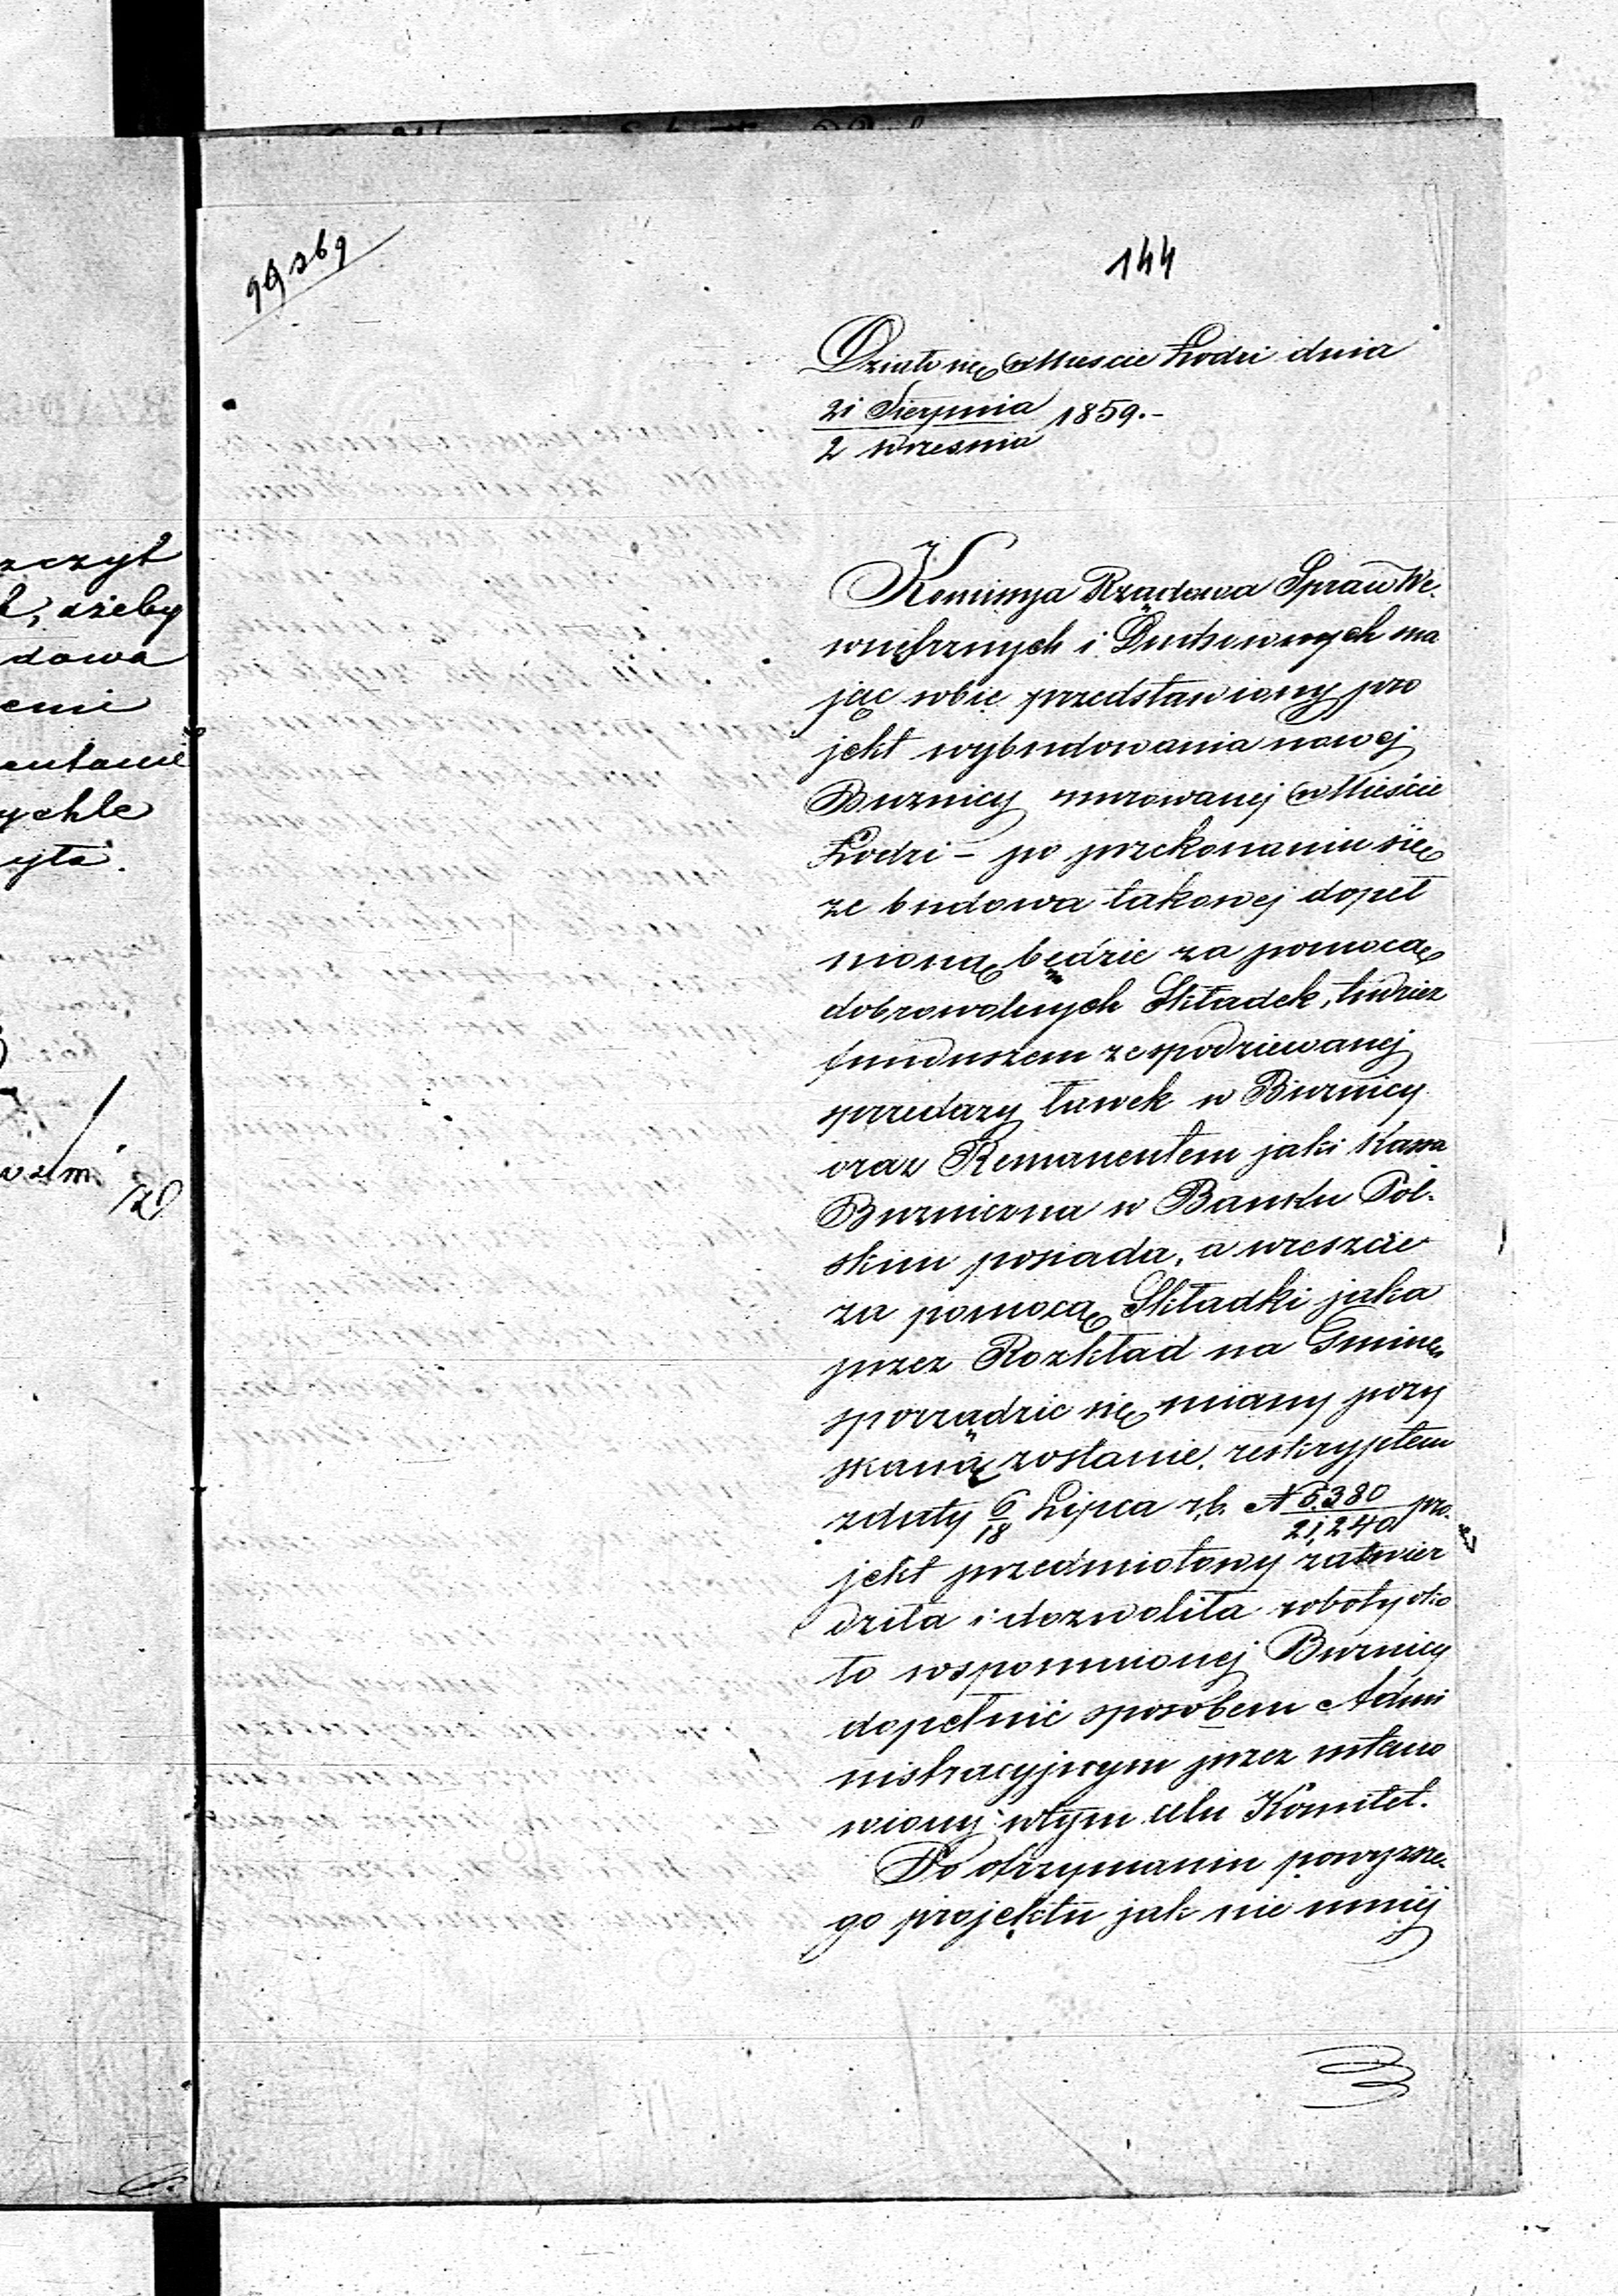 zczyt
ł, ażeby
dowa
enie
ychle
yta.
144
Działo się w Mieście Łodzi dnia
21 Sierpnia
2 Września 1859.-
Kommisya Rządowa Spraw We-
wnętrznych i Duchownych ma
jąc sobie przedstawiony pro
jekt wybudowania nowej
Bużnicy murowanej w Mieście
Łodzi – po przekonaniu się
że budowa takowej dopeł
nioną będzie za pomocą
dobrowolnych Składek, tudzież
funduszem ze spodziewanej
sprzedaży ławek w Bużnicy
oraz Remanentem jaki Kassa
Bużniczna w Banku Pol-
skim posiada, a wreszcie
za pomocą Składki jaka
przez Rozkład na Gminę
sporządzić się miany pozy
skaną zostanie, reskryptem
z daty 6/18 Lipca r.b. N 5380/21,240 pro-
jekt przedmiotowy zatwier
dziła i dozwoliła roboty oko
ło wspomnionej Bużnicy
dopełnić sposobem Admi
nistracyjnym przez ustano
wiony w tym celu Komitet.
Po otrzymaniu powyższe-
go projektu jak nie mniej